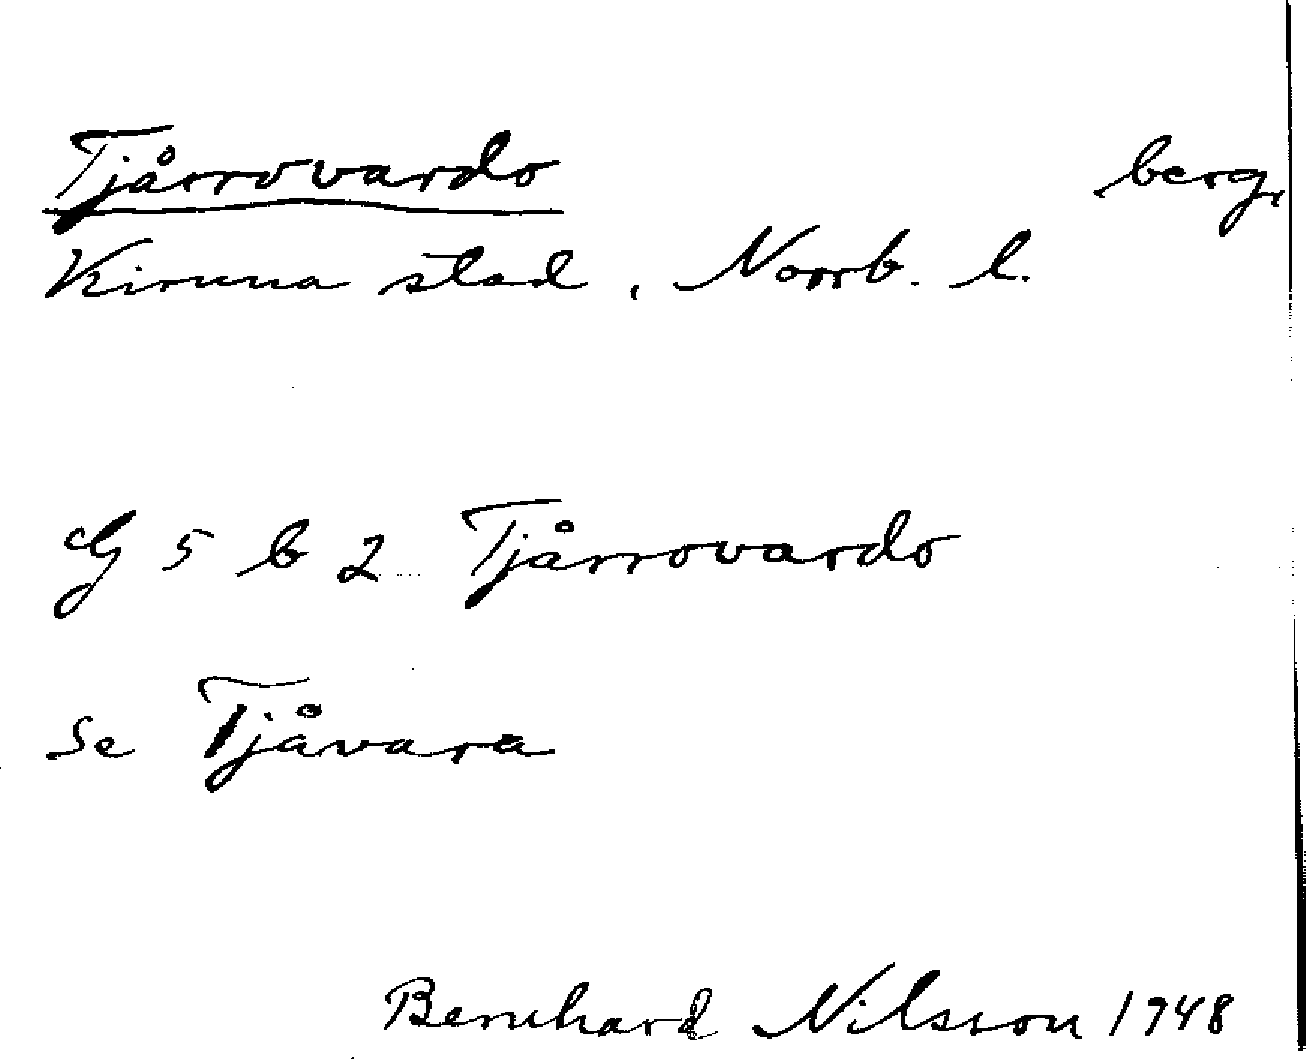 Tjårrovardo berg,
Kiruna stad, Norrb. l.
G 5 b 2 Tjårrovardo
Se Tjåvara
Bernhard Nilsson 1948